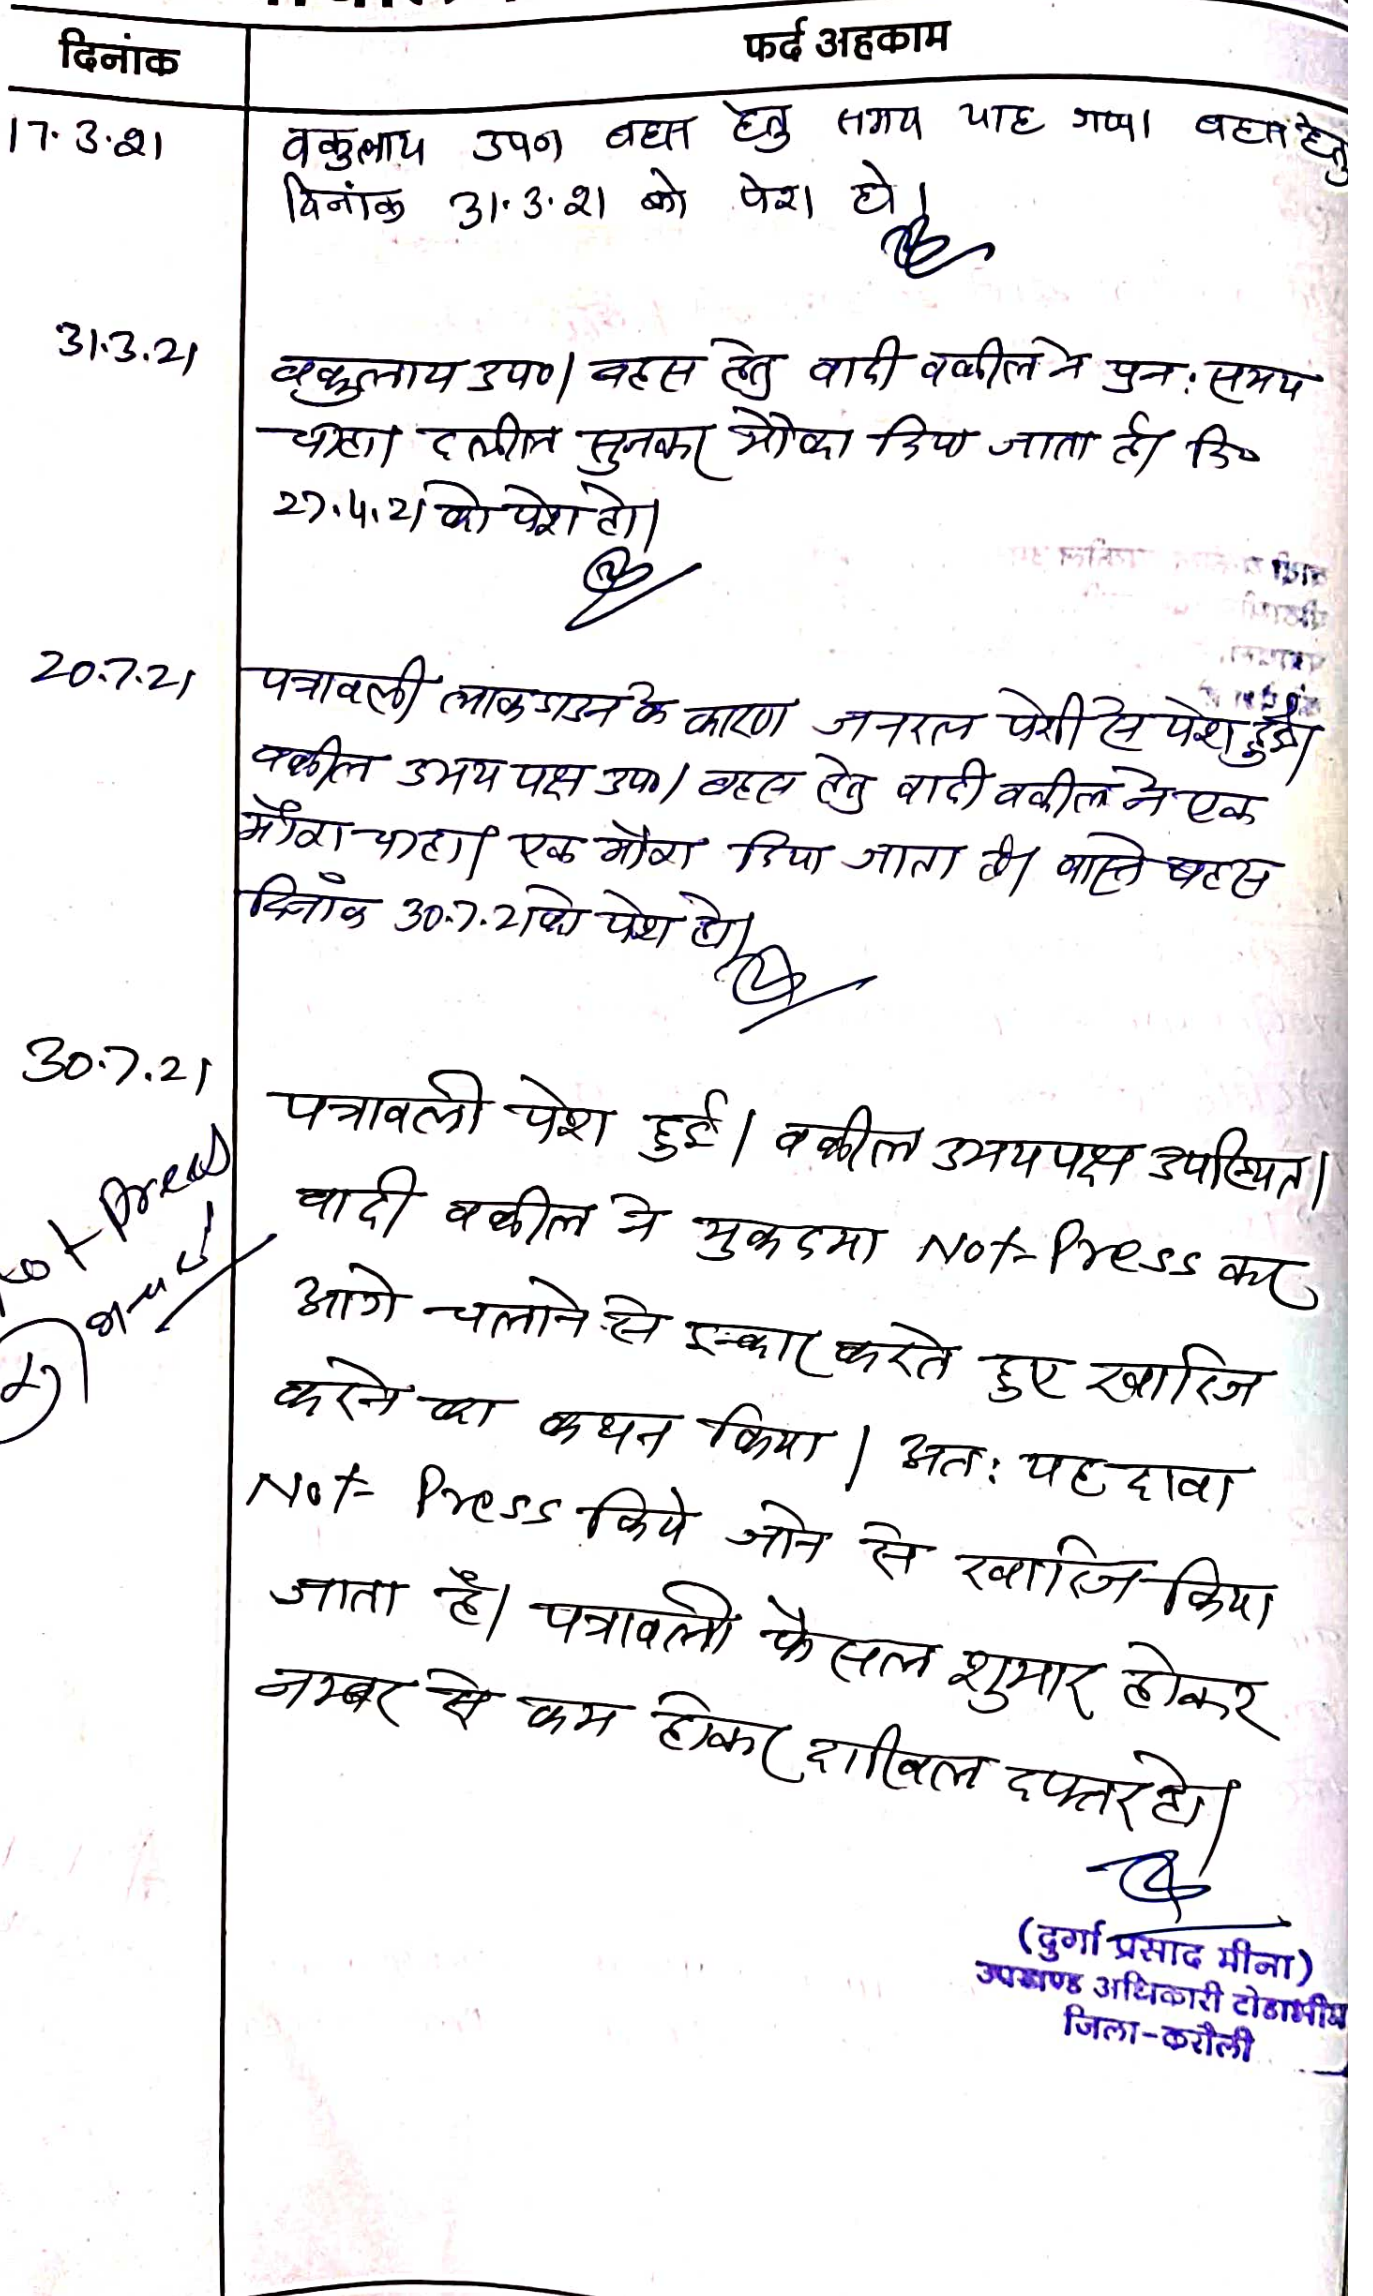 दिनांक
फर्द अहकाम
17.3.21
वकुलाय उप० बहस हेतु समय चाहा गया। बहस हेतु
दिनांक 31.3.21 को पेश हो।
31.3.21
वकुलाय उप०। बहस हेतु वादी वकील ने पुन: समय
चाहा। दलील सुनकर मौका दिया जाता है। दि०
27.4.21 को पेश हो।
20.7.21
पत्रावली लाकडाउन के कारण जनरल पेशी से पेश हुई।
वकील उभय पक्ष उप०। बहस हेतु वादी वकील ने एक
मौका चाहा। एक मौका दिया जाता है। वास्ते बहस
दिनाँक 30.7.21 को पेश हो।
30.7.21
पत्रावली पेश हुई। वकील उभयपक्ष उपस्थित।
वादी वकील ने मुकदमा Not-Press कर
आगे चलाने से इन्कार करते हुए खारिज
करने का कथन किया। अत: यह दावा
Not-Press किये जाने से खारिज किया
जाता है। पत्रावली फैसल शुमार होकर
नम्बर से कम होकर दाखिल दफ्तर हो।
Press
(दुर्गा प्रसाद मीना)
उपखण्ड अधिकारी टोडाभीम
जिला-करौली